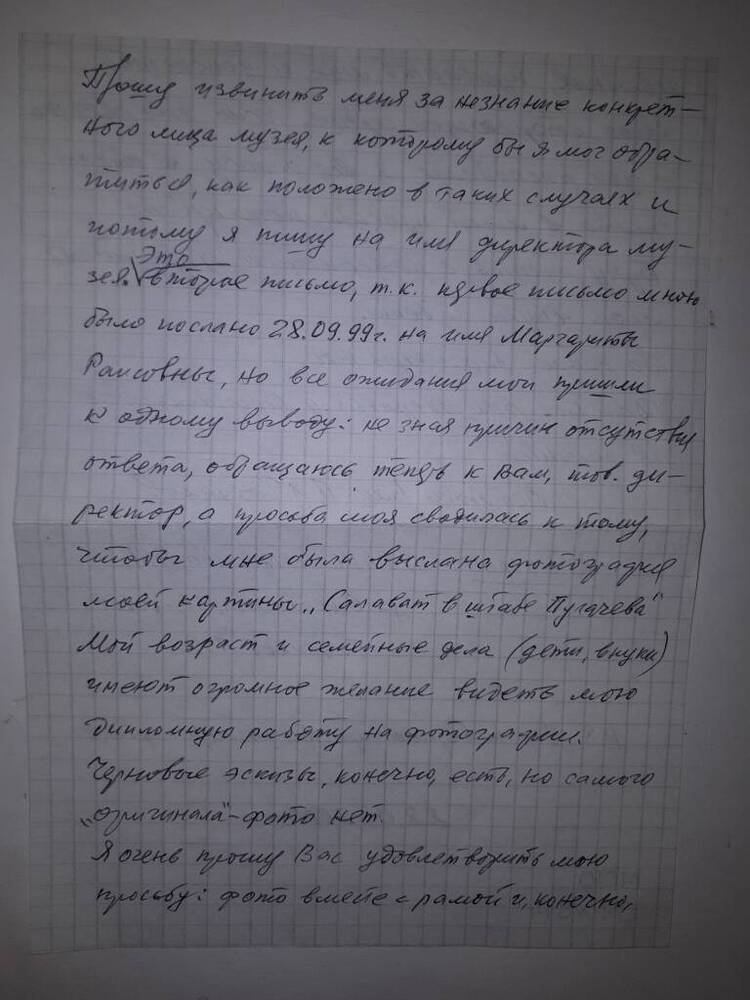 Прошу извинить меня за незнание конкрет-
ного лица музея, к которому бы я мог обра-
титься, как положено в таких случаях и
потому я пишу на имя директора му-
Это
зея. второе письмо, т.к. первое письмо мною
было послано 28.09.99г. на имя Маргариты
Раисовны, но все ожидания мои пришли
к одному выводу: не зная причин отсутствия
ответа, обращаюсь теперь к Вам, тов. ди-
ректор, а просьба моя сводилась к тому,
чтобы мне была выслана фотография
моей картины „Салават в штабе Пугачева"
Мой возраст и семейные дела (дети, внуки)
имеют огромное желание видеть мою
дипломную работу на фотографии.
Черновые эскизы, конечно, есть, но самого
„оригинала" - фото нет.
Я очень прошу Вас удовлетворить мою
просьбу: фото вместе с рамой и, конечно,